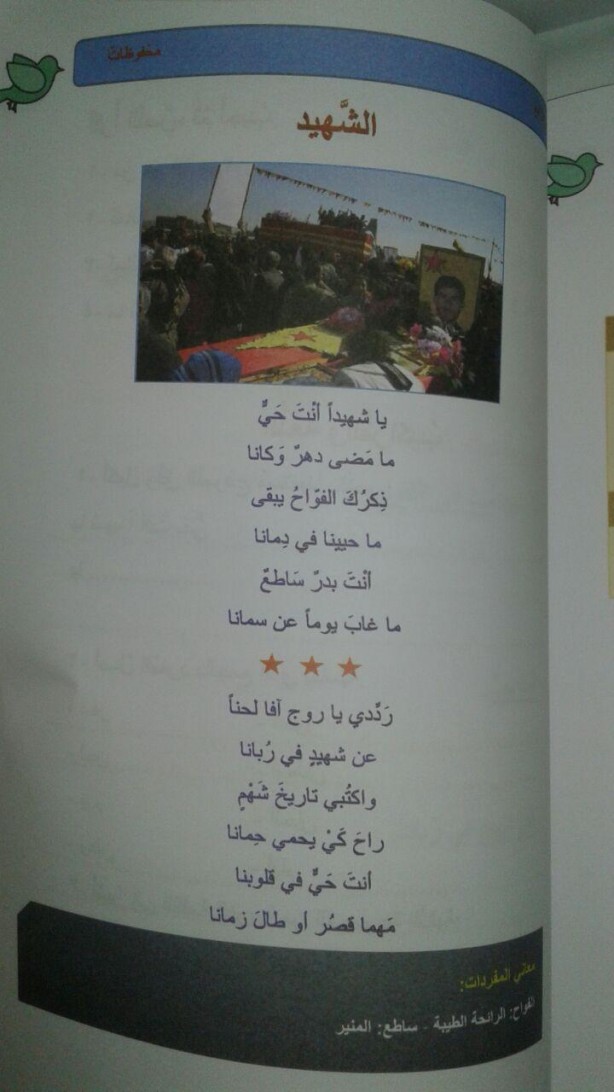 محفوظات
الشَّهيد
يا شهيداً أنْتَ حَيٌّ
ما مَضى دهرٌ وَكانا
ذِكرُكَ الفوّاحُ يبقى
ما حيينا في دِمانا
أنْتَ بدرٌ سَاطعٌ
ما غابَ يوماً عن سمانا
رَدِّدي يا روج آفا لحناً
عن شهيدٍ في رُبانا
واكتُبي تاريخَ شَهْمٍ
راحَ كَيْ يحمي حِمانا
أنتَ حَيٌّ في قلوبنا
مَهما قصُر أو طالَ زمانا
معاني المفردات:
الفواح: الرائحة الطيبة - ساطع: المنير